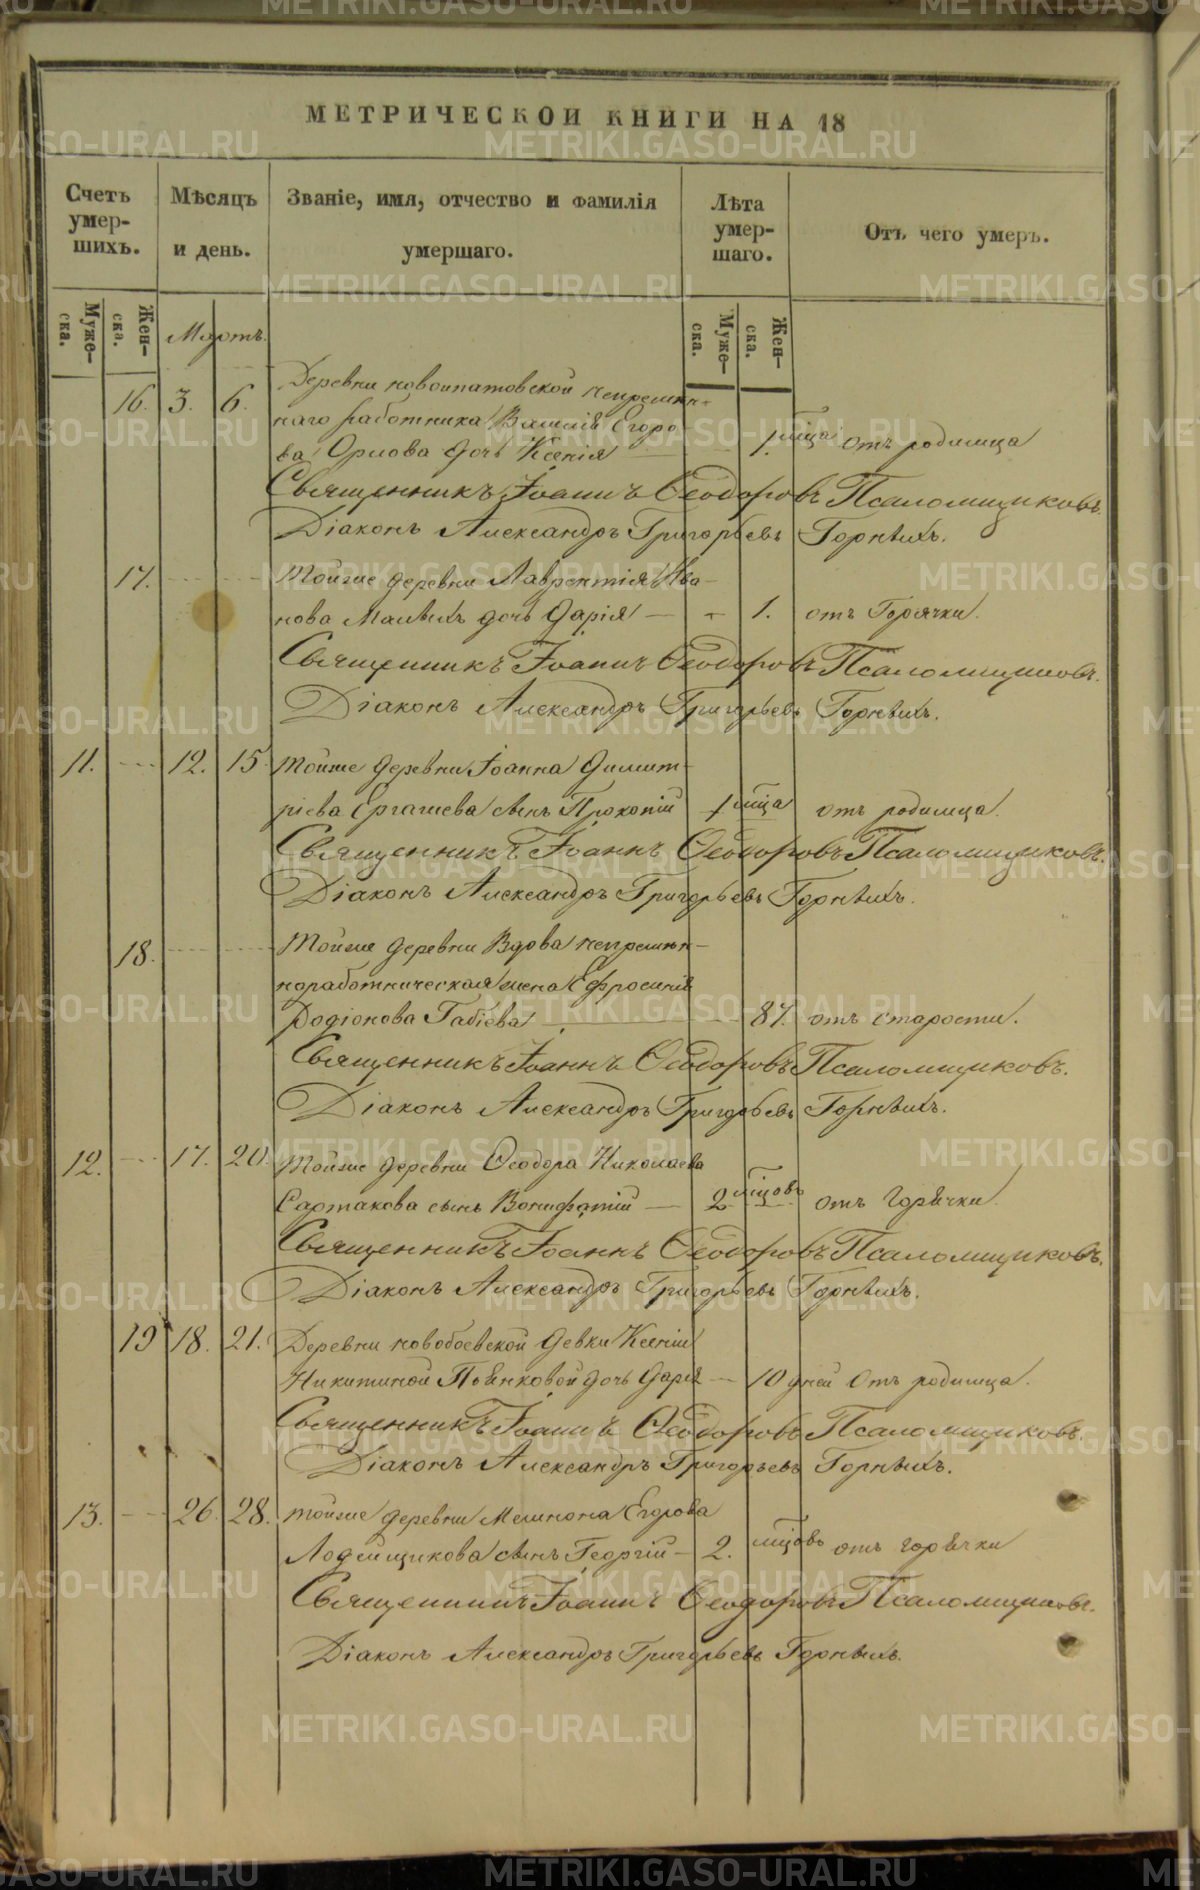 МЕТРИЧЕСКОИ КНИГИ НА 18
Счетъ умер-шихъ.
Мѣсяцъ и день.
Званіе, имя, отчество и фамилія умершаго.
Лѣта умер-шаго.
Отъ чего умеръ.
Муже-ска.
Жен-ска.
Мартъ.
Муже-ска.
Жен-ска.
16. 3. 6. Деревни новоипатовской непремѣн-
наго работника Василія Егоро
ва Орлова дочь Ксенія 1. мѣца отъ родимца
Священникъ Іоаннъ Ѳеодоровъ Псаломщиковъ.
Діаконъ Александръ Григорьевъ Горныхъ.
17. Тойже деревни Лаврентія Ива-
нова Малыхъ дочь Дарія 1. отъ Горячки.
Священникъ Іоаннъ Ѳеодоровъ Псаломщиковъ.
Діаконъ Александръ Григорьевъ Горныхъ.
11. 12. 15. Тойже деревни Іоанна Димит-
ріева Ергашева сынъ Прокопій 1 мѣца отъ родимца.
Священникъ Іоаннъ Ѳеодоровъ Псаломщиковъ.
Діаконъ Александръ Григорьевъ Горныхъ.
18. Тойже деревни Вдова непремѣн-
норабогническая жена Ефросинія
Родіонова Габіева 87. отъ старости.
Священникъ Іоаннъ Ѳеодоровъ Псаломщиковъ.
Діаконъ Александръ Григорьевъ Горныхъ.
12. 17. 20. Тойже деревни Ѳеодора Николаева
Сартакова сынъ Вонифатій 2 мѣцовъ отъ Горячки.
Священникъ Іоаннъ Ѳеодоровъ Псаломщиковъ.
Діаконъ Александръ Григорьевъ Горныхъ.
19 18. 21. Деревни новобоевской Девки Ксеніи
Никитиной Пьянковой дочь Дарія 10 дней Отъ родимца.
Священникъ Іоаннъ Ѳеодоровъ Псаломщиковъ.
Діаконъ Александръ Григорьевъ Горныхъ.
13. 26. 28. тойже деревни Мемнона Егорова
Лодейщикова сынъ Георгій 2. мѣцовъ отъ горячки
Священникъ Іоаннъ Ѳеодоровъ Псаломщиковъ.
Діаконъ Александръ Григорьевъ Горныхъ.
METRIKI.GASO-URAL.RU